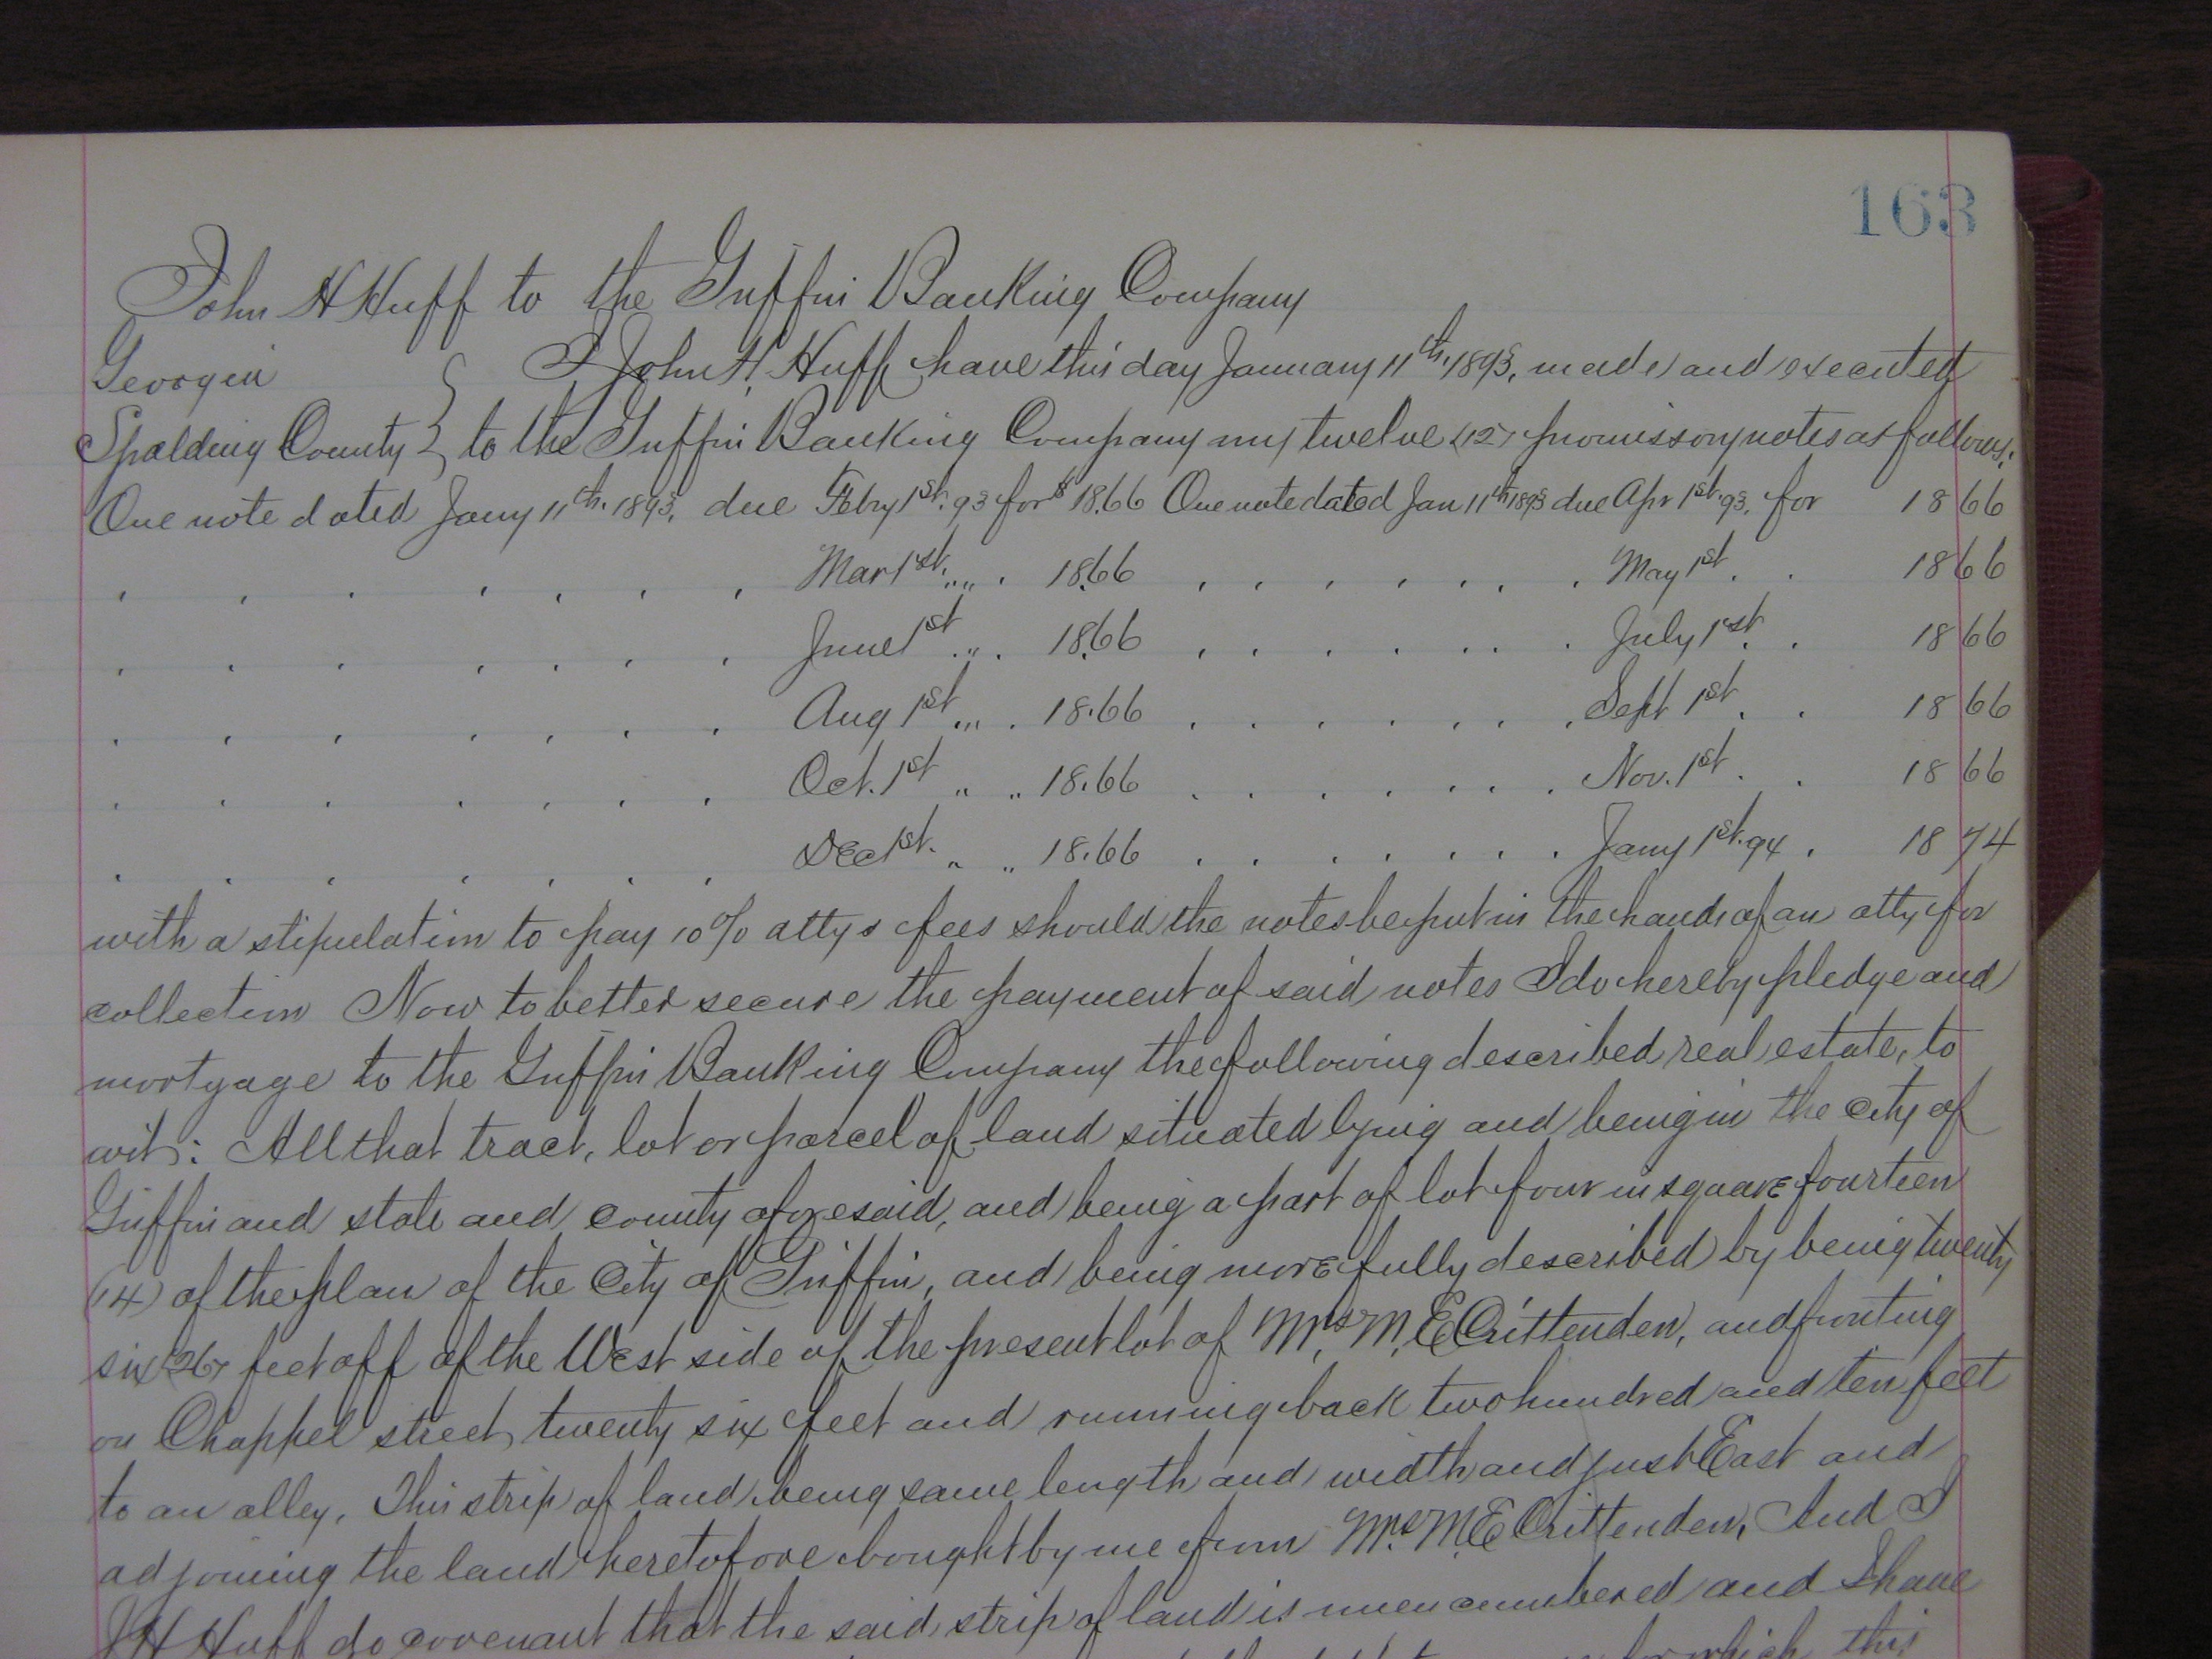 163
John H Huff to the Griffin Banking Company
Georgia } I, John H. Huff have this day January 11th. 1893, made and executed
Spalding County } to the Griffin Banking Company my twelve (12) promissory notes as follows:
One note dated Jany 11th. 1893, due Feby 1st. 93 for $18.66 One note dated Jan 11th 1893 due Apr 1st. 93. for 18 66
" " " " " " " Mar 1st. " " 18.66 " " " " " " " May 1st. " 18 66
" " " " " " " June 1st " " 18.66 " " " " " " " July 1st. " 18 66
" " " " " " " Aug 1st " " 18.66 " " " " " " " Sept 1st. " 18 66
" " " " " " " Oct. 1st " " 18.66 " " " " " " " Nov. 1st. " 18 66
" " " " " " " Dec 1st. " " 18.66 " " " " " " " Jany 1st. 94 " 18 74
with a stipulation to pay 10% attys fees should the notes be put in the hands of an atty for
collection Now to better secure the payment of said notes I do hereby pledge and
mortgage to the Griffin Banking Company the following described real estate, to
wit: All that tract, lot or parcel of land situated lying and being in the city of
Griffin and state and county aforesaid, and being a part of lot four in square fourteen
(14) of the plan of the City of Griffin, and being more fully described by being twenty
six (26) feet off of the West side of the present lot of Mrs. M. E Crittenden, and fronting
on Chappel street twenty six feet and running back two hundred and ten feet
to an alley. This strip of land being same length and width and just East and
adjoining the land heretofore bought by me from Mrs. M. E Crittenden, And I
J H Huff do covenant that the said strip of land is unencumbered and I have
for which this